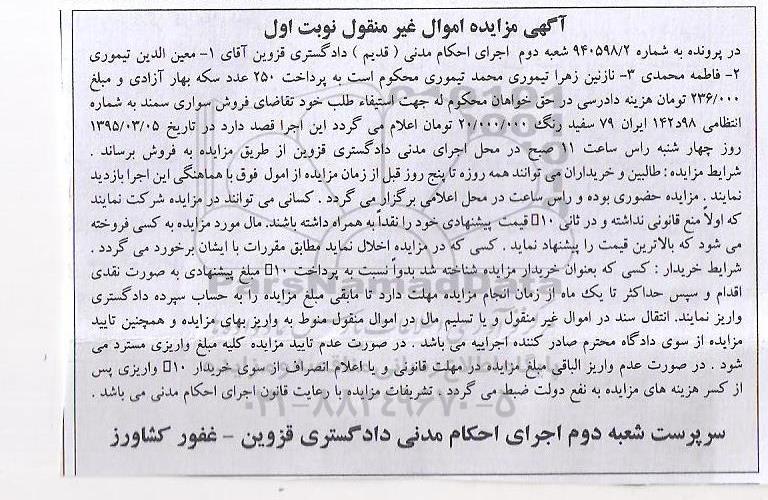 آگهی مزایده اموال غیر منقول نوبت اول
در پرونده به شماره ۹۴۰۵۹۸/۲ شعبه دوم اجرای احکام مدنی ( قدیم ) دادگستری قزوین آقای ۱- معین الدین تیموری
۲- فاطمه محمدی ۳- نازنین زهرا تیموری محمد تیموری محکوم است به پرداخت ۲۵۰ عدد سکه بهار آزادی و مبلغ
۲۳۶/۰۰۰ تومان هزینه دادرسی در حق خواهان محکوم له جهت استیفاء طلب خود تقاضای فروش سواری سمند به شماره
انتظامی ۹۸د۱۴۲ ایران ۷۹ سفید رنگ ۲۰/۰۰۰/۰۰۰ تومان اعلام می گردد این اجرا قصد دارد در تاریخ ۱۳۹۵/۰۳/۰۵
روز چهار شنبه راس ساعت ۱۱ صبح در محل اجرای مدنی دادگستری قزوین از طریق مزایده به فروش برساند .
شرایط مزایده : طالبین و خریداران می توانند همه روزه تا پنج روز قبل از زمان مزایده از امول فوق با هماهنگی این اجرا بازدید
نمایند . مزایده حضوری بوده و راس ساعت در محل اعلامی برگزار می گردد . کسانی می توانند در مزایده شرکت نمایند
که اولاً منع قانونی نداشته و در ثانی ۱۰ قیمت پیشنهادی خود را نقداً به همراه داشته باشند. مال مورد مزایده به کسی فروخته
می شود که بالاترین قیمت را پیشنهاد نماید . کسی که در مزایده اخلال نماید مطابق مقررات با ایشان برخورد می گردد .
شرایط خریدار : کسی که بعنوان خریدار مزایده شناخته شد بدواً نسبت به پرداخت ۱۰ مبلغ پیشنهادی به صورت نقدی
اقدام و سپس حداکثر تا یک ماه از زمان انجام مزایده مهلت دارد تا مابقی مبلغ مزایده را به حساب سپرده دادگستری
واریز نمایند. انتقال سند در اموال غیر منقول و یا تسلیم مال در اموال منقول منوط به واریز بهای مزایده و همچنین تایید
مزایده از سوی دادگاه محترم صادر کننده اجراییه می باشد . در صورت عدم تایید مزایده کلیه مبلغ واریزی مسترد می
شود . در صورت عدم واریز الباقی مبلغ مزایده در مهلت قانونی و یا اعلام انصراف از سوی خریدار ۱۰ واریزی پس
از کسر هزینه های مزایده به نفع دولت ضبط می گردد . تشریفات مزایده با رعایت قانون اجرای احکام مدنی می باشد .
سرپرست شعبه دوم اجرای احکام مدنی دادگستری قزوین - غفور کشاورز
ParsNamadData
۰۲۱-۸۸۳۴۹۶۷۰-۵